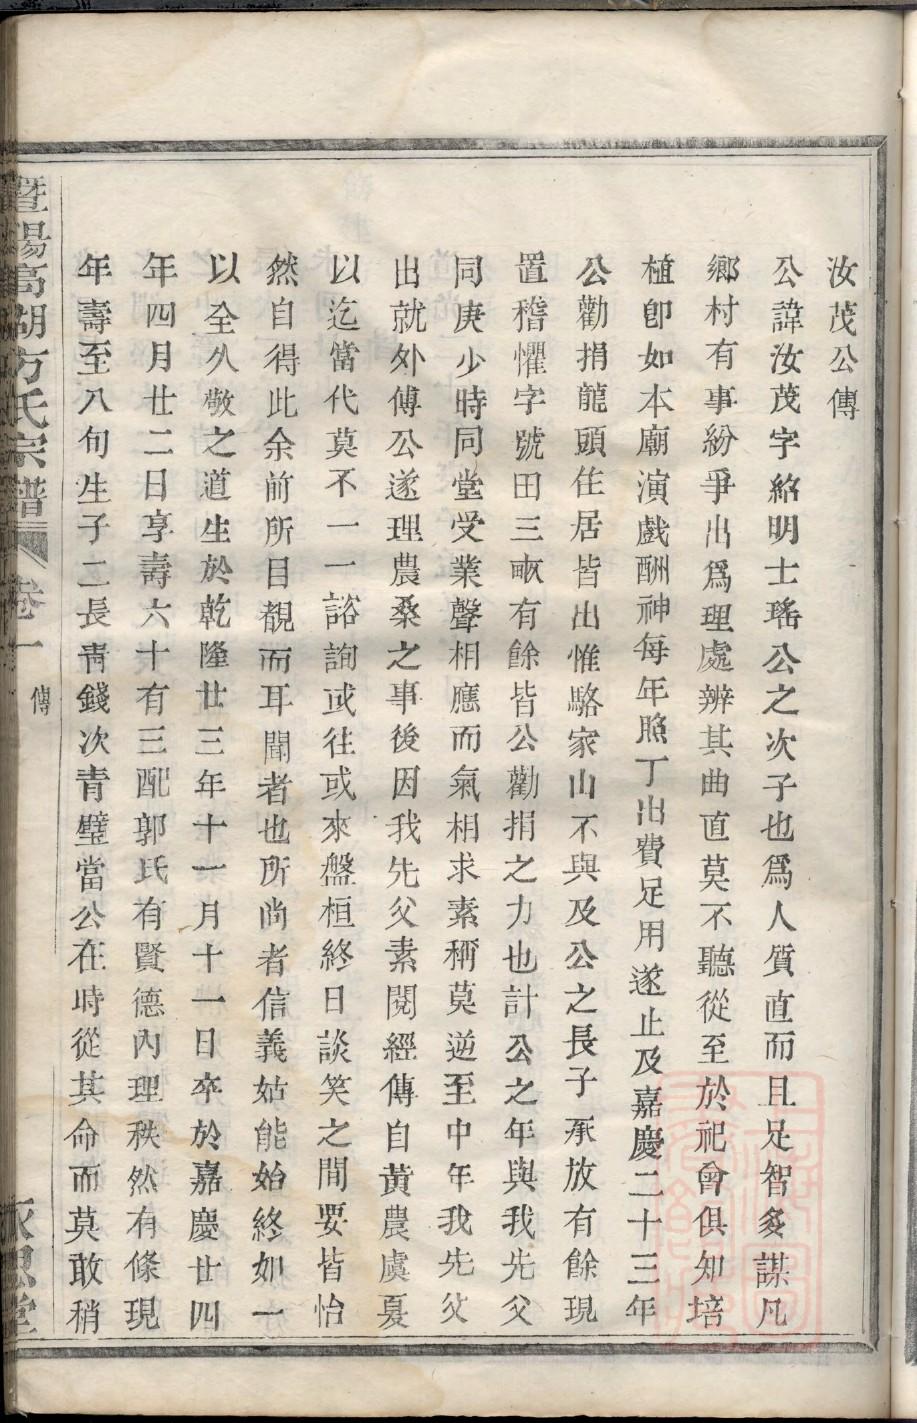 汝茂公傳
公諱汝茂字紹明士瑤公之次子也爲人質直而且足智多謀凡
鄉村有事紛爭出爲理處辨其曲直莫不聽從至於祀會俱知培
植卽如本廟演戲酬神每年照丁出費足用遂止及嘉慶二十三年
公勸捐龍頭住居皆出惟駱家山不與及公之長子承放有餘現
置稽懼字號田三畝有餘皆公勸捐之力也計公之年與我先父
同庚少時同堂受業聲相應而氣相求素稱莫逆至中年我先父
出就外傅公遂理農桑之事後因我先父素閱經傳自黃農虞夏
以迄當代莫不一一諮詢或往或來盤桓終日談笑之間要皆怡
然自得此余前所目覩而耳聞者也所尚者信義姑能始終如一
以全久敬之道生於乾隆廿三年十一月十一日卒於嘉慶廿四
年四月廿二日享壽六十有三配郭氏有賢德內理秩然有條現
年壽至八旬生子二長靑錢次青璧當公在時從其命而莫敢稍
暨陽高湖方氏宗譜 卷一 傳 思堂